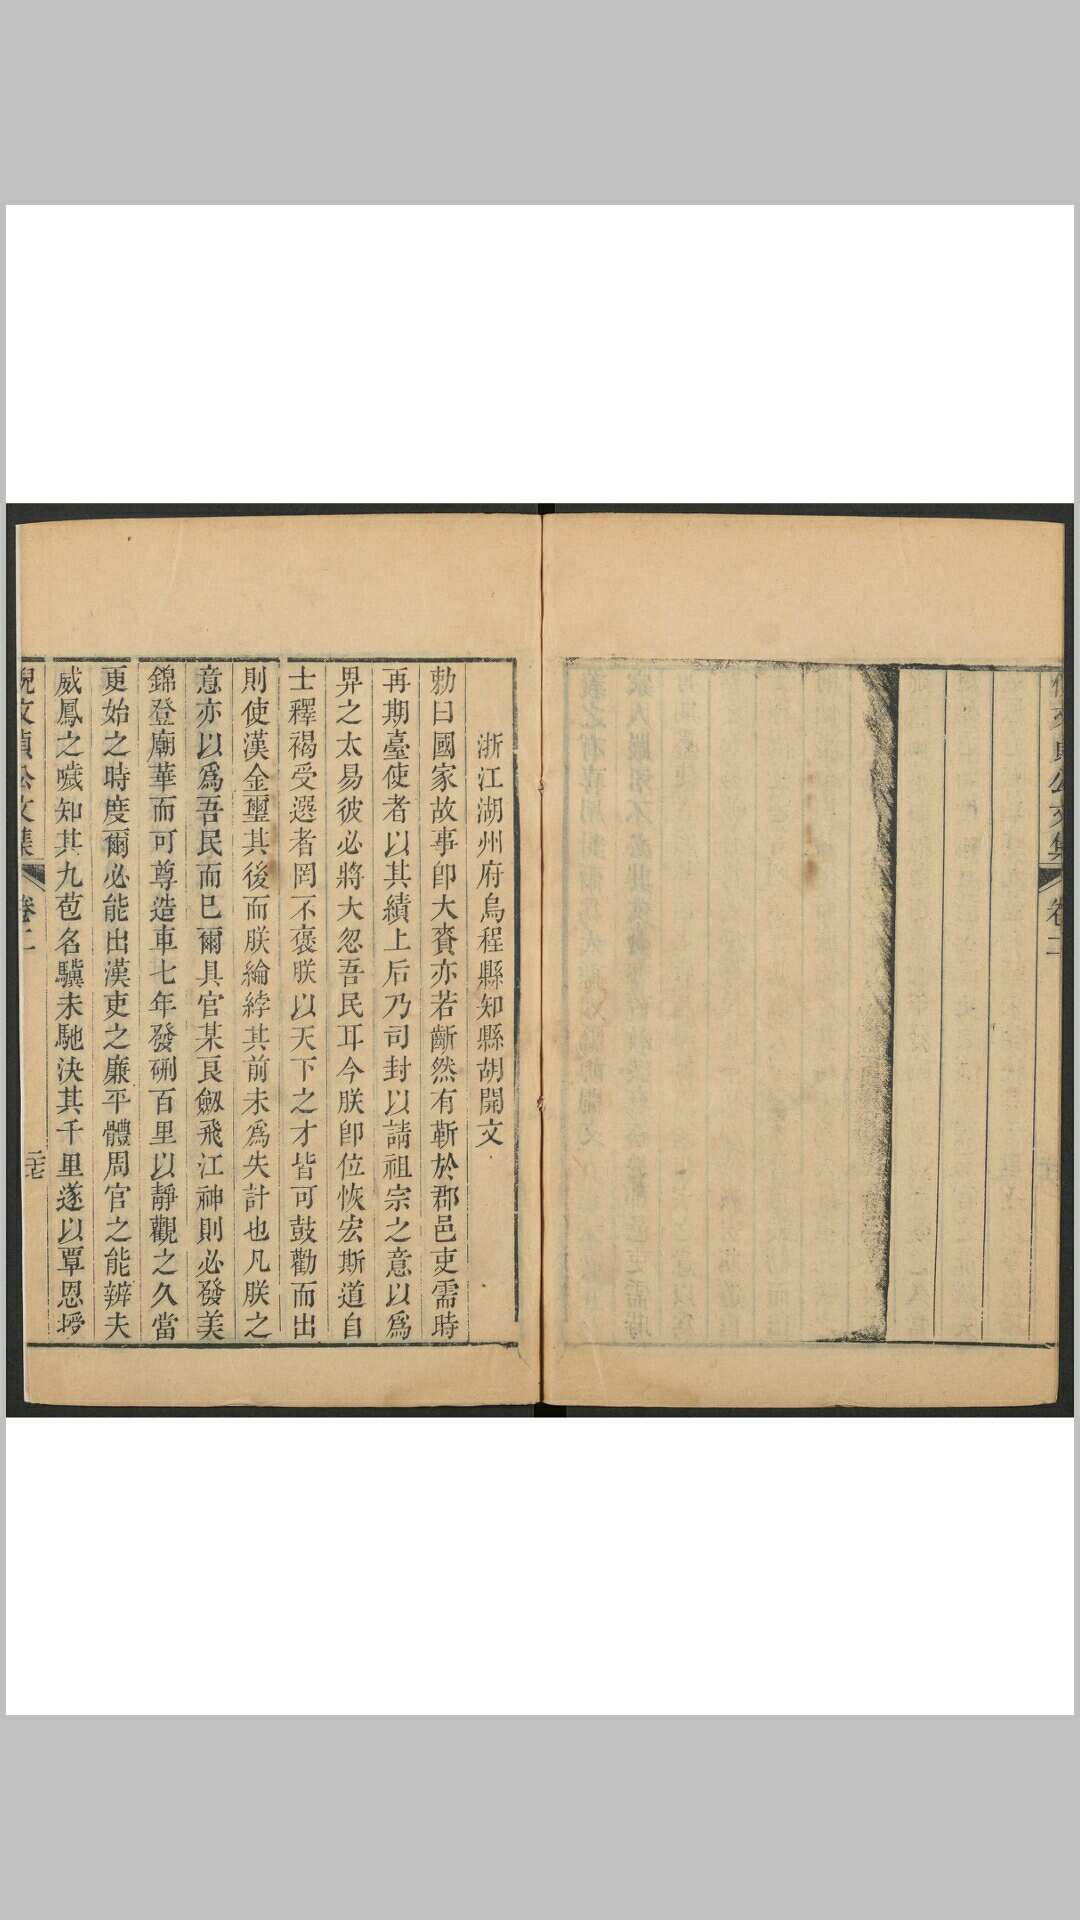 倪文貞公文集
卷二
浙江湖州府烏程縣知縣胡開文
勅曰國家故事卽大賚亦若斷然有靳於郡邑吏需時
再期臺使者以其績上后乃司封以請祖宗之意以爲
畀之太易彼必將大忽吾民耳今朕卽位恢宏斯道自
士釋褐受選者罔不褒朕以天下之才皆可鼓勸而出
則使漢金璽其後而朕綸綍其前未爲失計也凡朕之
意亦以爲吾民而已爾具官某良劒飛江神則必發美
錦登廟華而可尊造車七年發硎百里以靜觀之久當
更始之時度爾必能出漢吏之廉平體周官之能辨夫
威鳳之噦知其九苞名驥未馳決其千里遂以覃恩授
倪文貞公文集
卷二
二七